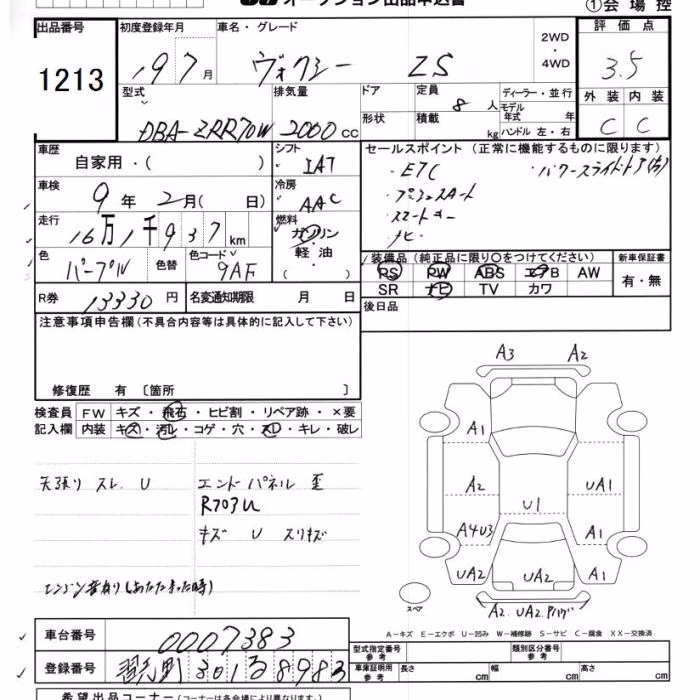 オークション出品申込書
①会場控
出品番号 初度登録年月 車名・グレード 2WD・4WD 評価点
1213 19 7月 ヴォクシー ZS 3.5
型式 排気量 ドア 定員 8人 ディーラー・並行 外装 内装
DBA-ZRR70W 2000cc 形状 積載 kg モデル年式 年 ハンドル 左・右 C C
車歴 自家用・( ) シフト IAT セールスポイント (正常に機能するものに限ります)
・ETC ・パワースライドドア(
車検 9年 2月( 日) 冷房 AAC ・プッシュスタート
・スマートキー
・ナビ
走行 16万1千937km 燃料 ガソリン・軽油・( )
色 パープル 色替 色コード 9AF
装備品 (純正品に限り○をつけてください) 新車保証書
PS PW ABS エアB AW 有・無
SR ナビ TV カワ
R券 13330円 名変通知期限 月 日 後日品
注意事項申告欄 (不具合内容等は具体的に記入して下さい)
修復歴 有 〔箇所 〕
検査員 FW キズ・飛石・ヒビ割・リペア跡・×要
記入欄 内装 キズ・汚レ・コゲ・穴・スレ・キレ・破レ
天張り スレ. U エンドパネル 歪
R703U
キズ U スリキズ
エンジン音有り(あたたまった時)
A3 A2
A1
A2 UA1
U1
A4U3 A1
UA2 UA2 A1
スペア
A2.UA2.
A-キズ E-エクボ U-凹み W-補修跡 S-サビ C-腐食 XX-交換済
車台番号 0007383
登録番号 301 8983
型式指定番号 参考 類別区分番号 参考
車庫証明用 参考 長さ cm 幅 cm 高さ cm
希望出品コーナー (コーナーは各会場により異なります。)